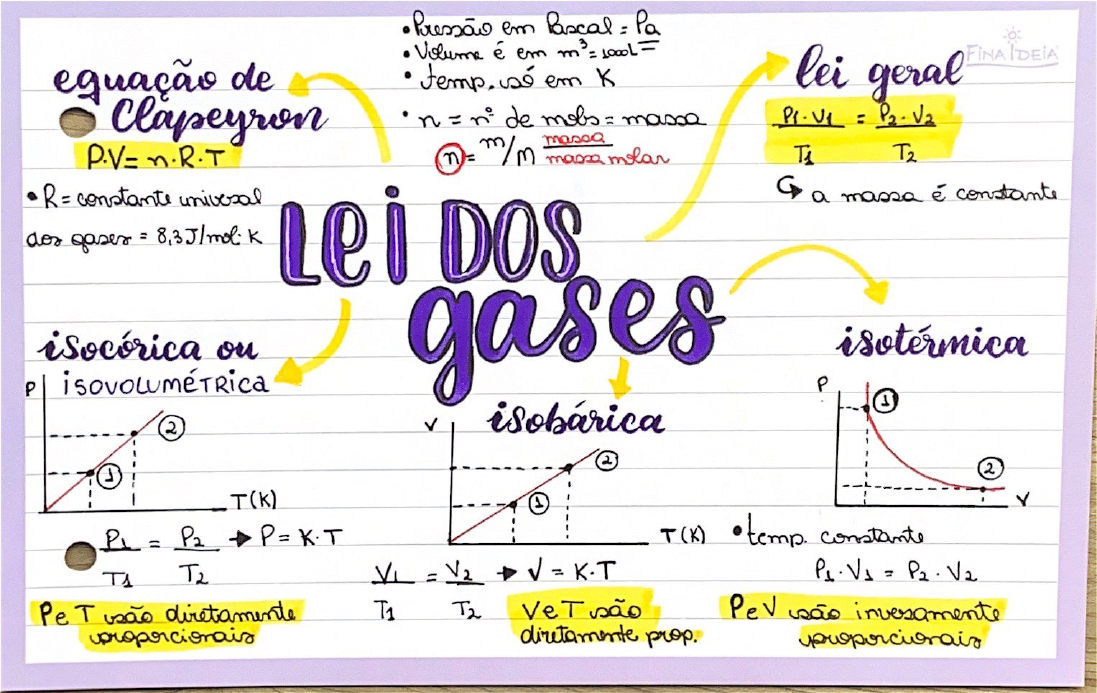 • Pressão em Pascal = Pa
• Volume é em m³ = 1000L
• temp. só em K
• n = nº de mols = massa
n = m/M massa
massa molar
FINA IDEIA
equação de
Clapeyron
P.V = n.R.T
• R = constante universal
dos gases = 8,3 J/mol.K
lei geral
P1.V1 = P2.V2
T1 T2
↳ a massa é constante
Lei dos
gases
isocórica ou
isovolumétrica
P
2
1
T(K)
P1 = P2 → P = K.T
T1 T2
P e T são diretamente
proporcionais
isobárica
V
2
1
T(K)
V1 = V2 → V = K.T
T1 T2
V e T são
diretamente prop.
isotérmica
P
1
2
V
• temp. constante
P1.V1 = P2.V2
P e V são inversamente
proporcionais